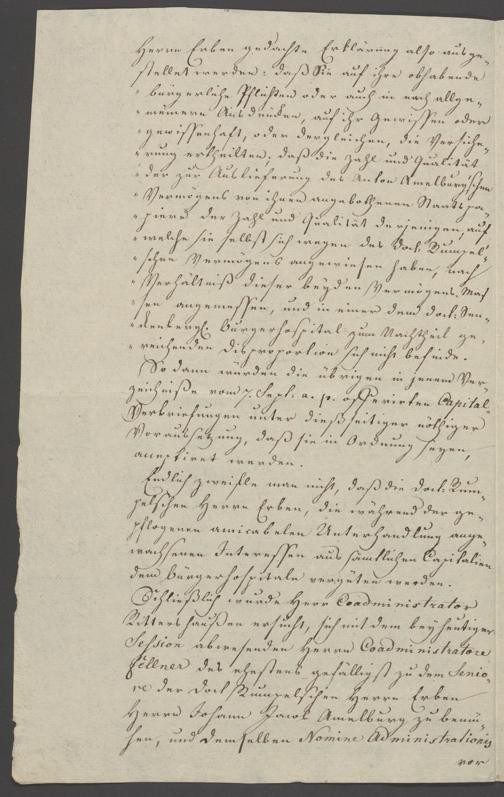 Herren Erben gedachte Erklärung also ausge-
stellet werden: daß Sie auf ihre obhabende
„bürgerliche Pflichten oder auch in noch allge-
„meinern Ausdrücken, auf ihr Gewissen oder
„gewissenhaft, oder dergleichen, die Versiche-
„rung ertheilten, daß die Zahl und Qualität
„der zur Auslieferung des Anton Amelburg'schen
„Vermögens von ihnen angebothenen Staatspa-
„piere der Zahl und Qualität derjenigen, auf
„welche sie selbst sich wegen des Doct. Rumpel-
„schen Vermögens angewiesen haben, nach
„Verhältniß dieser beyden Vermögens-Mas-
„sen angemessen, und in einer dem Doct. Sen-
„kenbergl. Bürgerhospital zum Nachtheil ge-
„reichenden Disproportion sich nicht befinde.
So dann würden die übrigen in jenem Ver-
zeichniße vom 7. Sept. a. p. offerirten Capital-
Verbriefungen unter dießseitiger nöthiger
Voraussetzung, daß sie in Ordnung seyen,
acceptiret werden.
Endlich zweifle man nicht, daß die Doct. Rum-
pelschen Herrn Erben, die während der ge-
pflogenen amicabelen Unterhandlung ange-
wachsenen Interessen aus sämtlichen Capitalien
dem Bürgerhospitale vergüten werden.
Schließlich wurde Herr Coadministrator
Rittershaußen ersucht, sich mit dem bey heutiger
Session abwesenden Herrn Coadministratore
Fellner des ehestens gefälligst zu dem Senio-
re der Doct. Rumpelschen Herrn Erben
Herrn Johann Jacob Amelburg zu bemü-
hen, und demselben Nomine Administrationis
vor